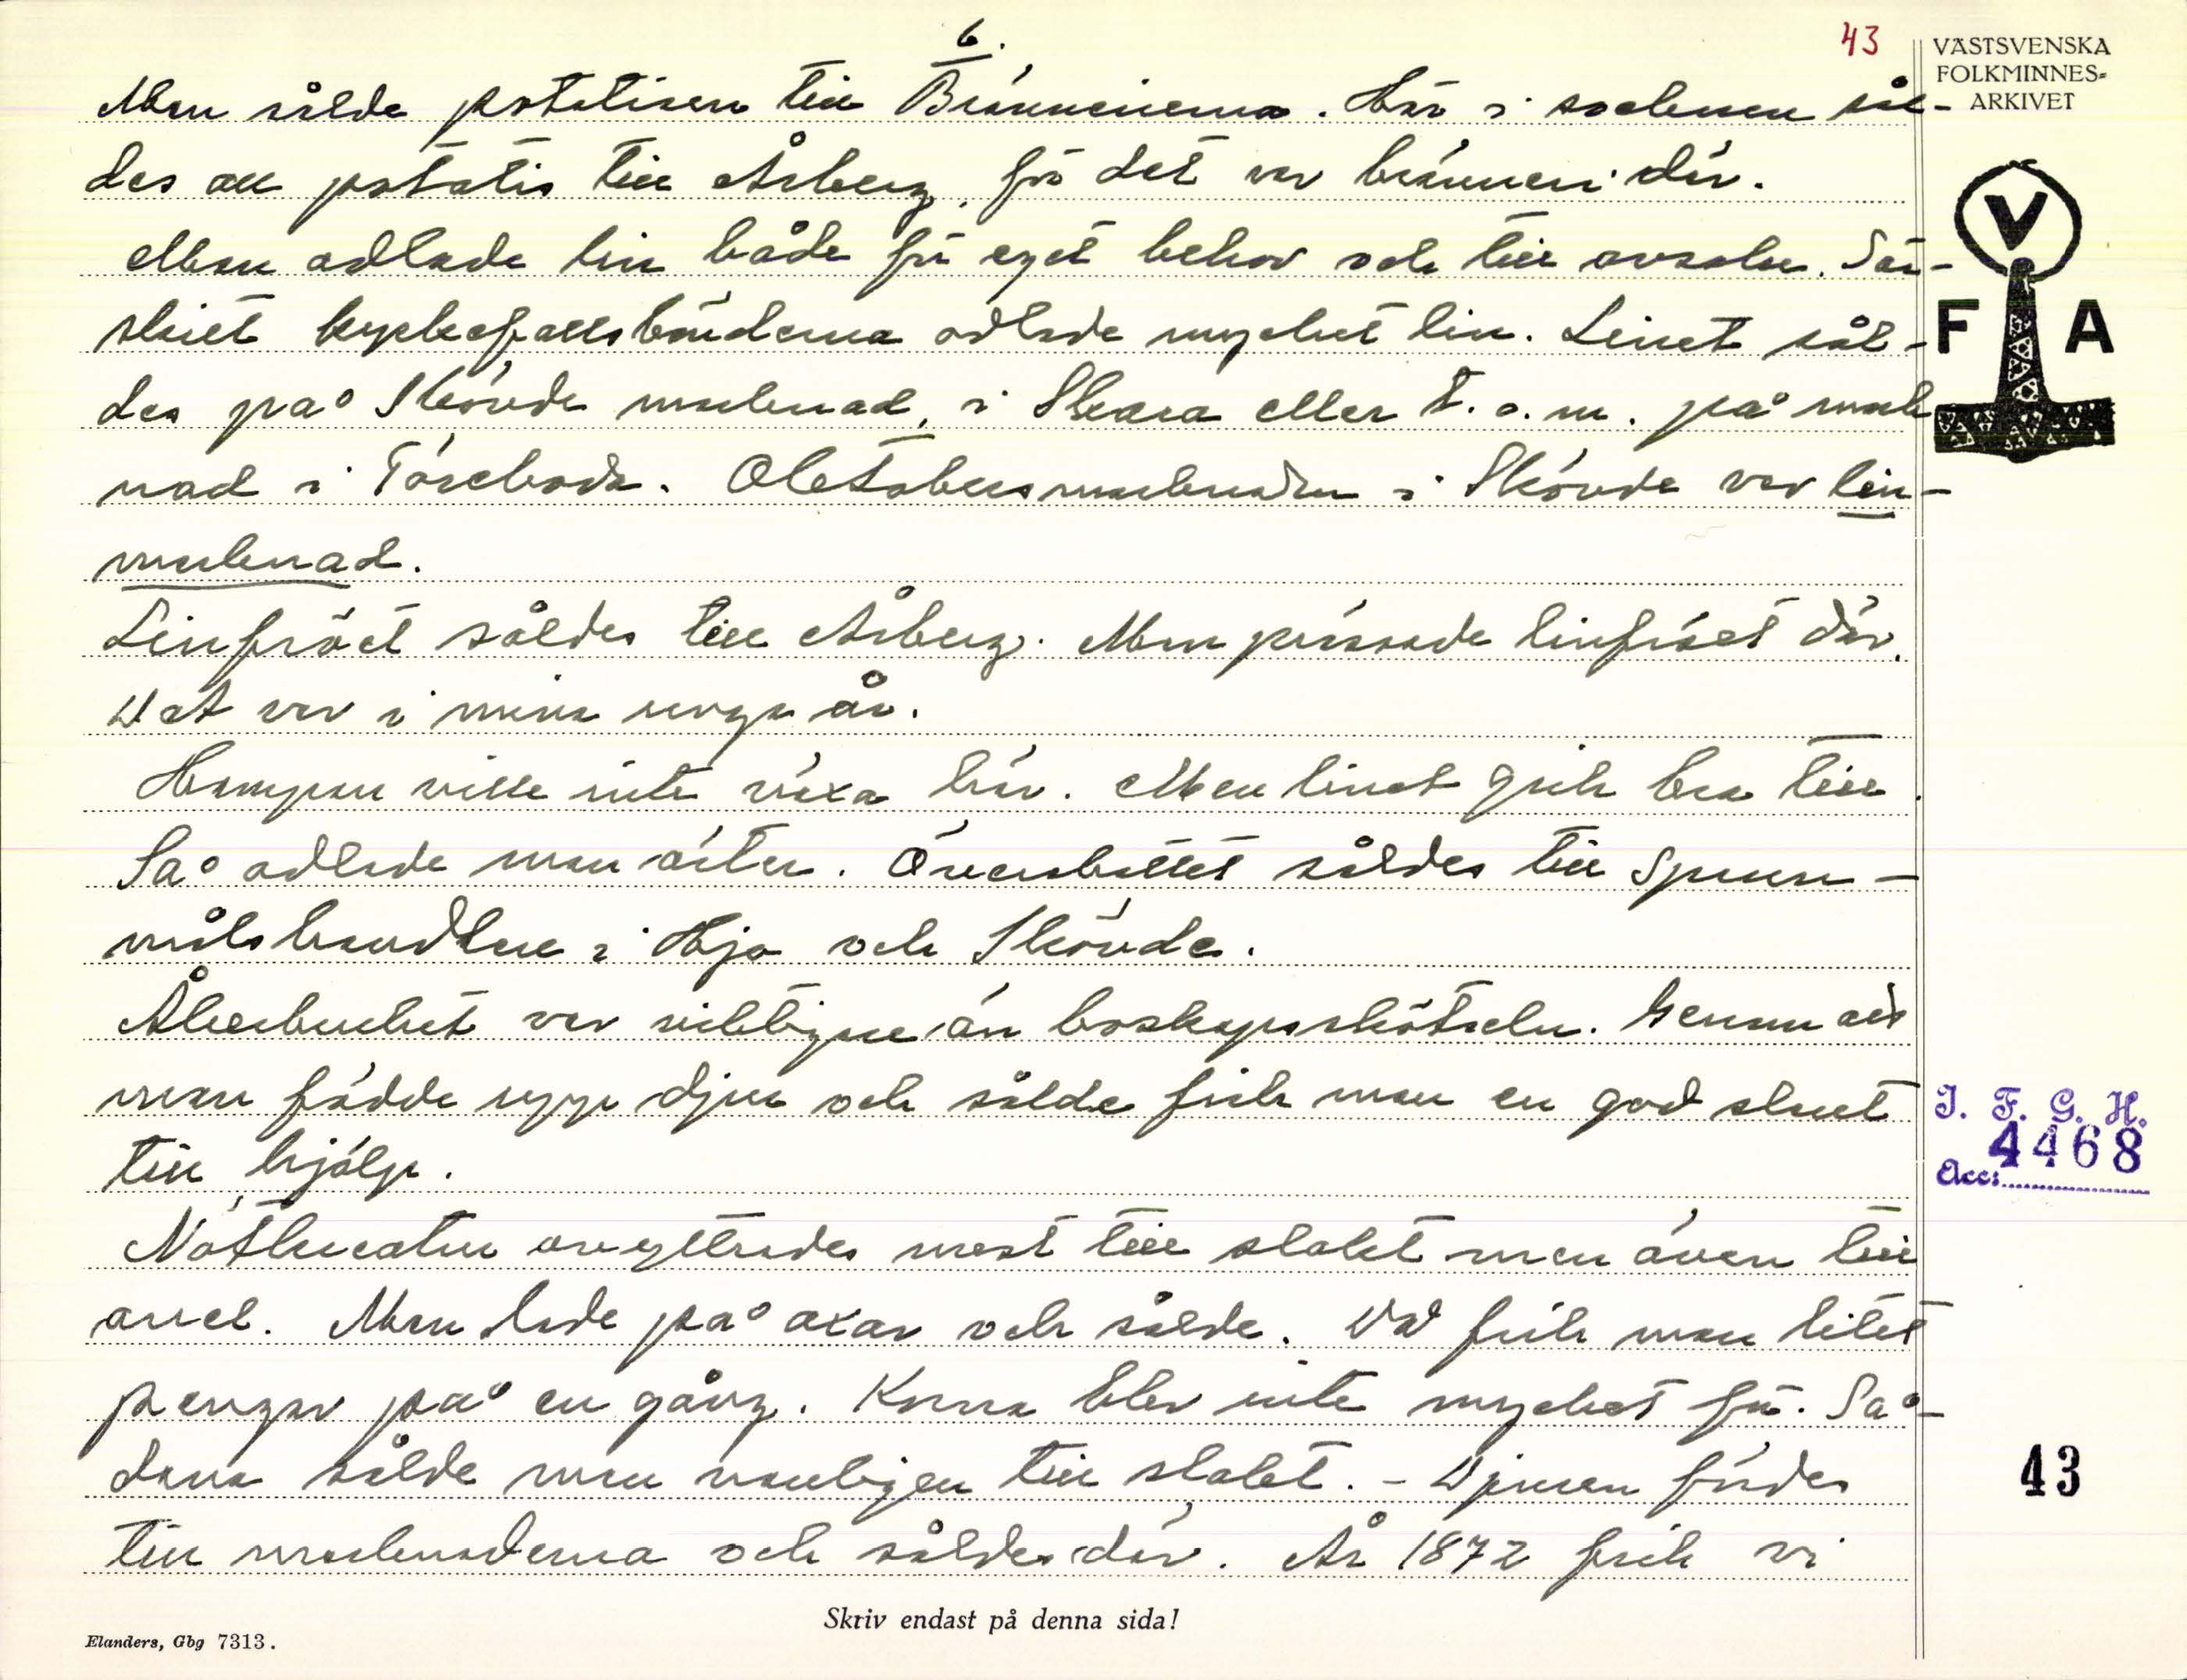 6.
43
VÄSTSVENSKA
FOLKMINNES-
ARKIVET
Man sålde potatisen till Brännerierna. Här i socknen sål-
des all potatis till Årberg, för det var bränneri där.
Man odlade lin både för eget behov och till avsalu. Sär-
skilt kyrkefallsbönderna odlade mycket lin. Linet sål-
des på Skövde marknad, i Skara eller t. o. m. på mark
nad i Töreboda. Oktobersmarknaden i Skövde var lin-
marknad.
Linfröet såldes till Årberg. Man pressade linfröet där.
Det var i mina unga år.
Hampan ville inte växa här. Men linet gick bra till.
Så odlade man ärter. Överskottet såldes till Spann-
målshandlare i Hjo och Skövde.
Åkerbruket var viktigare än boskapsskötseln. Genom att
man födde upp djur och sålde fick man en god slant
till hjälp.
Nötkreaturen avyttrades mest till slakt men även till
avel. Man lade på oxar och sålde. Då fick man litet
pengar på en gång. Korna blev inte mycket för. Så-
dana sålde man vanligen till slakt. - Djuren fördes
till marknaderna och såldes där. År 1872 fick vi
V
F A
I. F. G. H.
4468
Acc:
43
Skriv endast på denna sida!
Elanders, Gbg 7313.